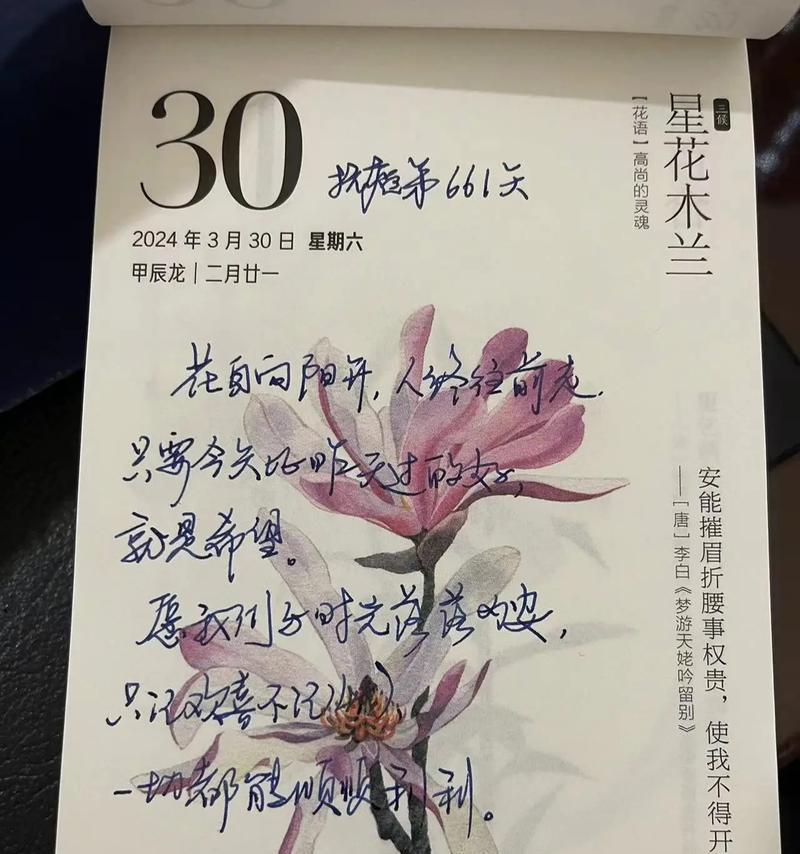 30
抗癌第661天
2024年3月30日 星期六
甲辰龙|二月廿一
三候
星花木兰
【花语】高尚的灵魂
花自向阳开,人终往前走.
只要今天比昨天过的好,
就是希望。
愿我们与时光落落的安,
只记欢喜不记
一切都能顺顺利利。
安能摧眉折腰事权贵,使我不得开
——[唐]李白《梦游天姥吟留别》